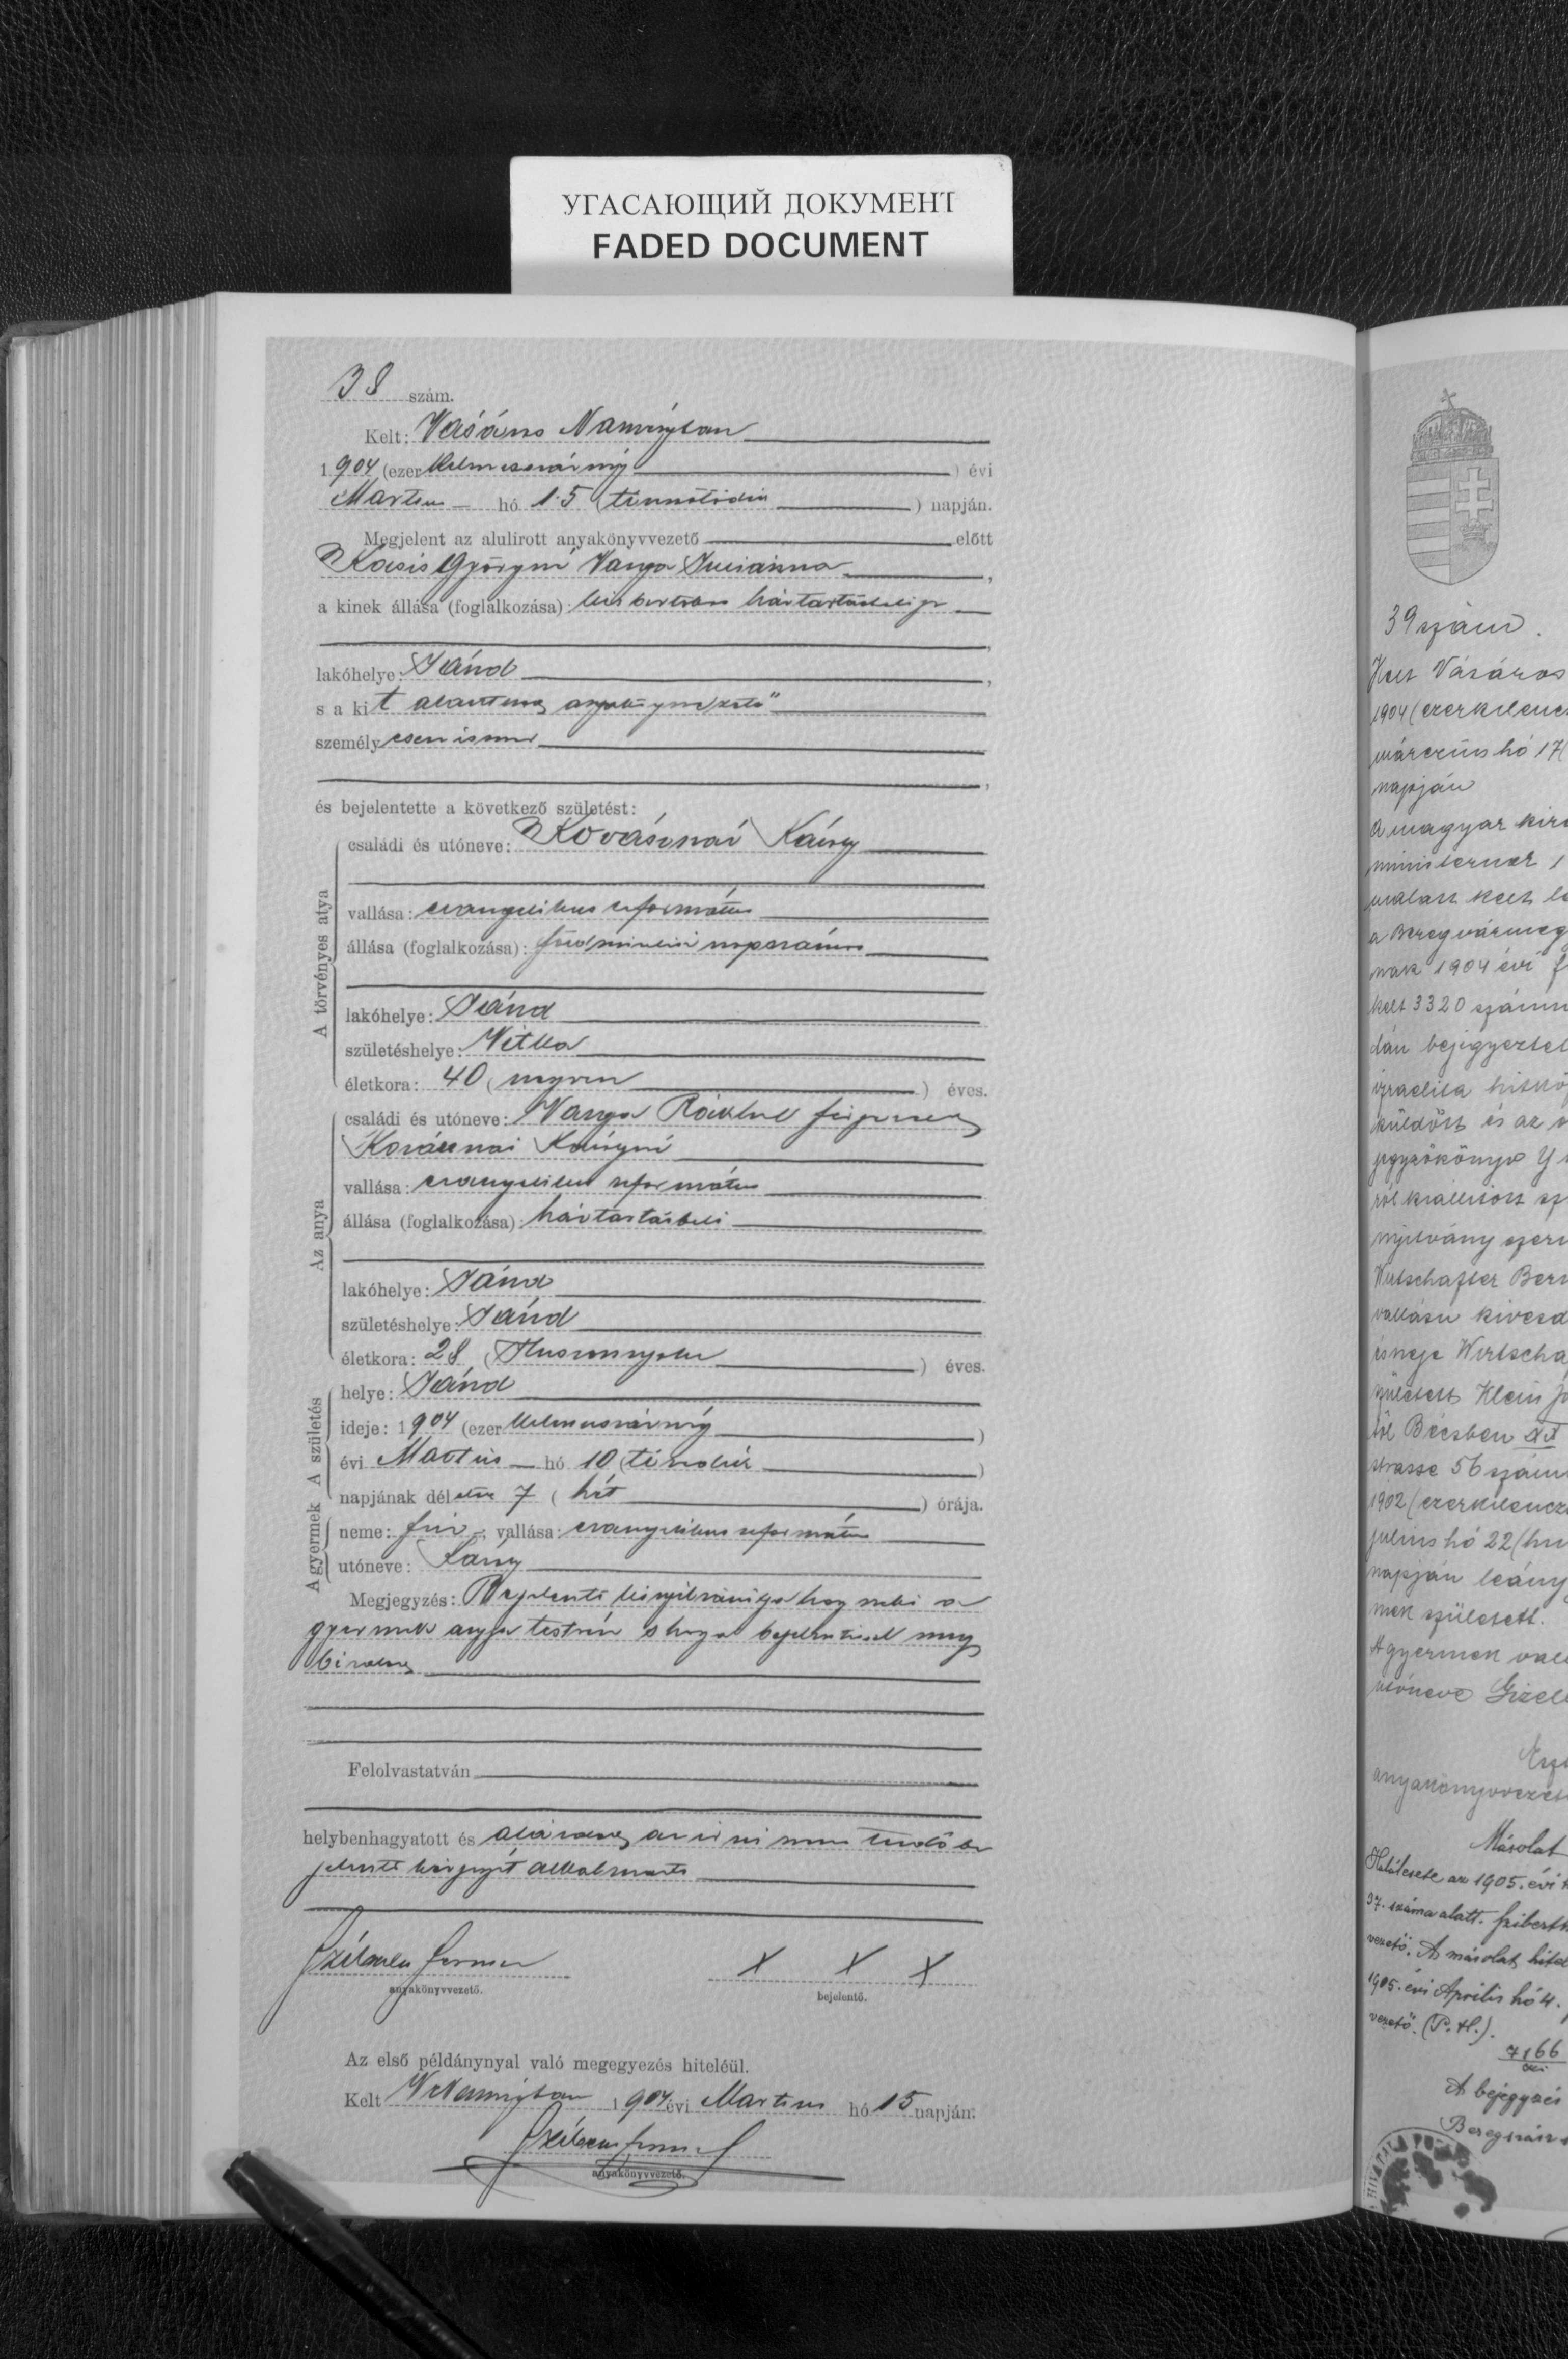 УГАСАЮЩИЙ ДОКУМЕНТ
FADED DOCUMENT
38 szám.
Kelt: Vásáros Naményban
1904 (ezer kilenczszáznégy) évi
Martius hó 15 (tizenötödik) napján.
Megjelent az alulírott anyakönyvvezető előtt
Györgyné Varga Zsuzsánna,
a kinek állása (foglalkozása): háztartásbeli
lakóhelye: Jánd,
s a kit alantirott anyakönyvvezető
személyesen ismer
és bejelentette a következő születést:
A törvényes atya
családi és utóneve: Kovásznai Károly
vallása: evangelikus református
állása (foglalkozása): földmivelési napszámos
lakóhelye: Jánd
születéshelye: Vitka
életkora: 40 (negyven) éves.
Az anya
családi és utóneve: Varga Ráchel férjezett
Kovásznai Károlyné
vallása: evangelikus református
állása (foglalkozása): háztartásbeli
lakóhelye: Jánd
születéshelye: Jánd
életkora: 28 (Huszonnyolcz) éves.
A születés
helye: Jánd
ideje: 1904 (ezer kilenczszáznégy)
évi Martius hó 10 (tizedik)
napjának délelőtt 7 (hét) órája.
A gyermek
neme: fiú; vallása: evangelikus református
utóneve:
Megjegyzés: Bejelentő kinyilvánítja hogy neki a
gyermek anyja testvére s hogy a bejelentéssel meg
bizatott
Felolvastatván
helybenhagyatott és aláiratott az irni nem tudó be
jelentő kézjegyét alkalmazta
anyakönyvvezető.
X X X
bejelentő.
Az első példánynyal való megegyezés hiteléül.
Kelt VNaményban 1904 évi Martius hó 15 napján.
anyakönyvvezető.
39 szám.
Kelt Vásáros
1904 (ezerkilencz
márczius hó 17 (
napján
A magyar kirá
ministernek 1
a Beregvármegy
nak 1904 évi f
kelt 3320 számú
bejegyeztet
izraelita hitkö
küldött és az
jegyzőkönyv
ról kiállitott
nyitvány szeri
Wirtschafter Bern
vallásu
és neje Wirtscha
született Klein
tól Bécsben XX
strasse 56 szám
1902 (ezerkilencz
julius hó 22 (hu
napján leány
mek született.
A gyermek vall
utóneve Gizel
anyakönyvvezet
Másolat
az 1905. évi
37. száma alatt.
vezető. A másolat hitel
1905. évi Április hó 4.
vezető. (P. H.).
7166
A bejegyzés